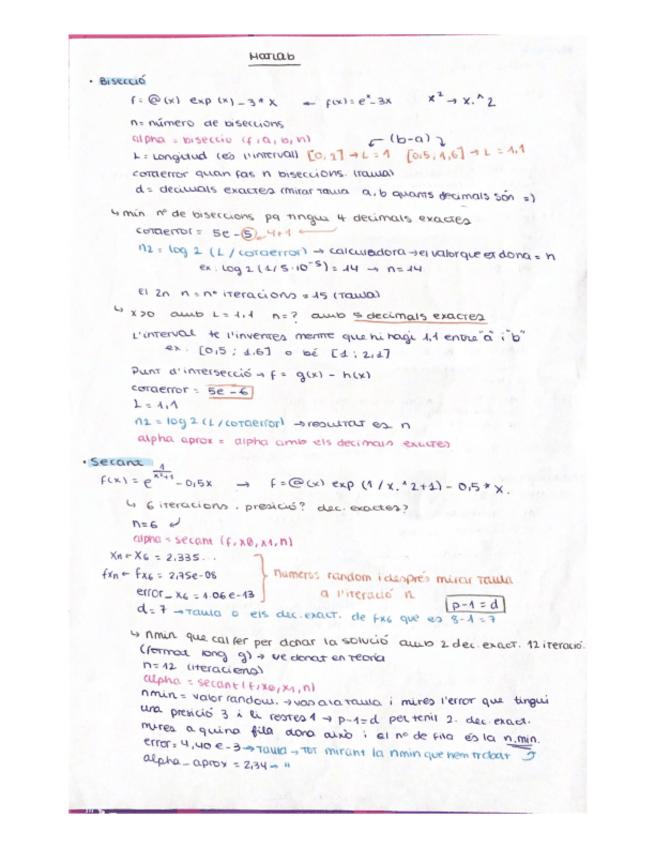 Matlab
• Bisecció
f = @(x) exp(x)-3*x ← f(x) = eˣ-3x x² → x.^2
n = número de biseccions
alpha = biseccio (f,a,b,n) (b-a)
L = Longitud (és l'interval) [0,1] → L = 1 [0,5,1,6] → L = 1,1
cotaerror quan fas n biseccions. (taula)
d = decimals exactes (mirar taula a,b quants decimals són =)
↳ min nº de biseccions pq tingui 4 decimals exactes
cotaerror = 5e-5 4+1
n2 = log2 (L/cotaerror) → calculadora → el valor que et dona = n
ex: log2(1/5·10⁻⁵) = 14 → n = 14
El 2n n = nº iteracions = 15 (taula)
↳ x>0 amb L = 1,1 n=? amb 5 decimals exactes
L'interval te l'inventes mentre que hi hagi 1,1 entre "a" i "b"
ex. [0,5 ; 1,6] o bé [1 ; 2,1]
Punt d'intersecció → f = g(x) - h(x)
cotaerror = 5e-6
L = 1,1
n2 = log2(L/cotaerror) → resultat es n
alpha aprox = alpha amb els decimals exactes
• Secant
f(x) = e^(1/(x²+1)) - 0,5x → f = @(x) exp(1/x.^2+1) - 0,5*x.
↳ 6 iteracions. presició? dec. exactes?
n=6
alpha = secant (f,x0,x1,n)
xn ← x6 = 2.335...
fxn ← fx6 = 2,75e-08
error_x6 = 1.06e-13
numeros random i després mirar taula
a l'iteració n
d = 7 → taula o els dec. exact. de fx6 que es 8-1=7
p-1 = d
↳ nmin que cal fer per donar la solució amb 2 dec. exact. 12 iteració.
(format long g) → ve donat en teoria
n = 12 (iteracions)
alpha = secant (f,x0,x1,n)
nmin = valor random. → vas a la taula i mires l'error que tingui
una presició 3 i li restes 1 → p-1=d per tenir 2. dec. exact.
mires a quina fila dona això i el nº de fila és la n.min.
error = 4,40e-3 → taula → tot mirant la nmin que hem trobat
alpha_aprox = 2,34 → "